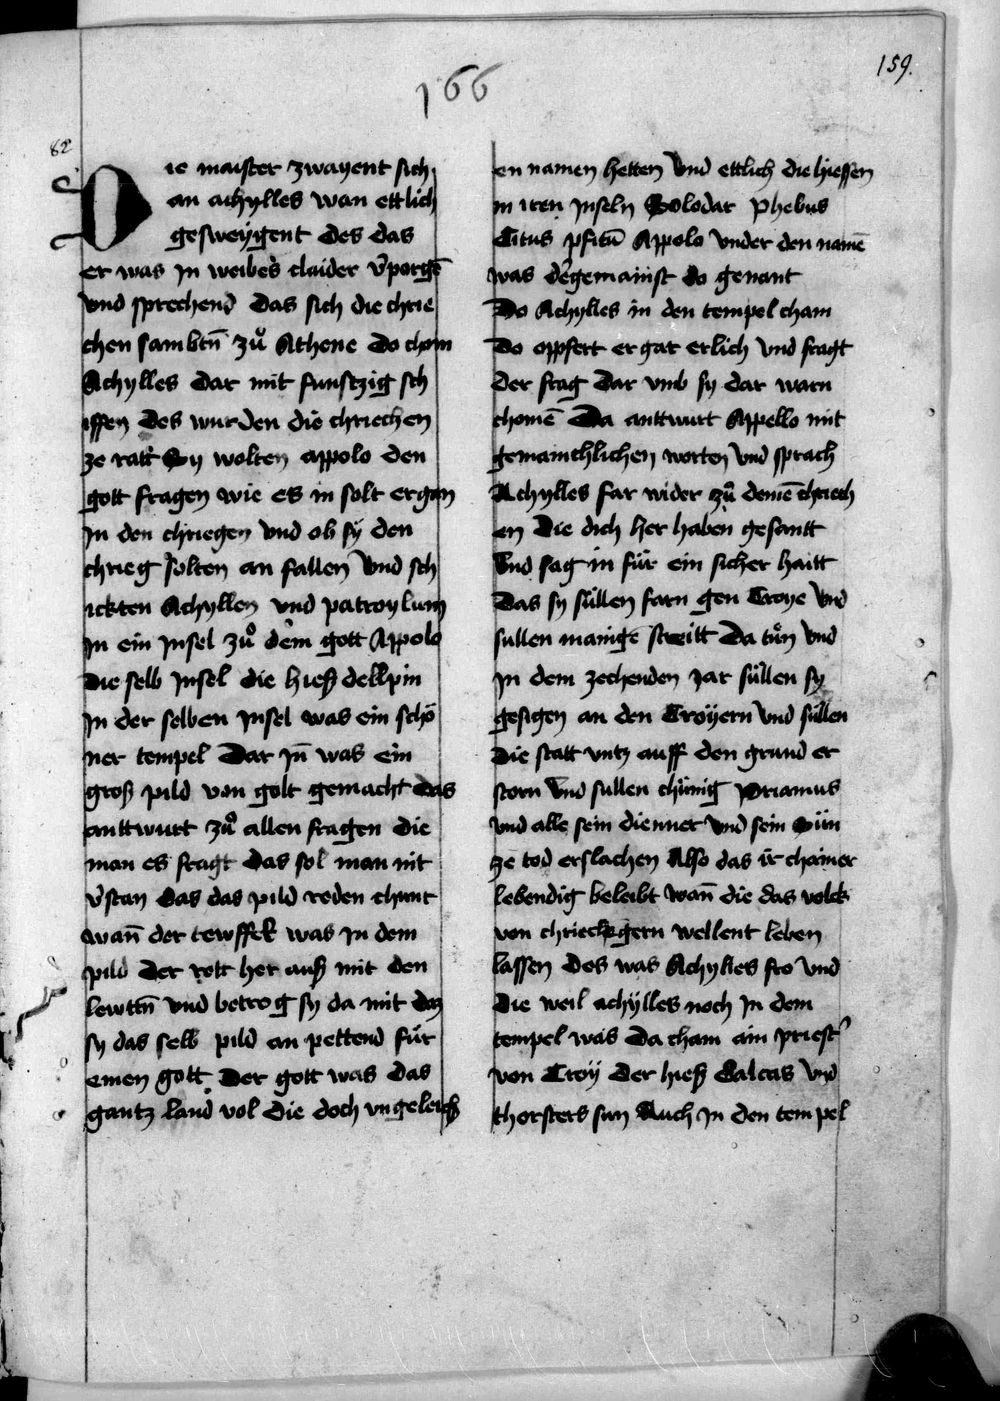 159.
166
82
Die maister zwayent sich
an achylles wan ettlich
gesweygent des das
er was jn weibes claider v̉porgē
vnd sprechend das sich die chrie
chen sambtn̄ zů Athene do chom
Achylles dar mit funfczig sch
iffen des wurden die chriechen
ze ratt̉ Sy wolten appolo den
gott fragen wie es in solt ergan
jn den chriegen vnd ob sy den
chrieg solten an fallen vnd sch
ickten Achyllen vnd patroylum
jn ein jnsel zů dem gott Appolo
die selb jnsel die hieß dellpin
jn der selben jnsel was ein schö
ner tempel Dar jn̄ was ein
groß pild von golt gemacht das
anttwurt zů allen fragen die
man es fragt das sol man nit
v̉stan das das pild reden chunt
wan̄ der tewffek was jn dem
pild der rett her auß mit den
lewttn̄ vnd betrog sy da mit daz
sy das selb pild an pettend für
einen gott Der gott was das
gantz land vol die doch vngeleich
en namen hetten vnd ettlich die hiessen
in iren jnseln Solodar phebus
Citus pfitū Appolo vnder den namē
was d̉ gemainst do genant
Do Achylles in den tempel cham
do oppfert er gar erlich vnd fragt
der frag dar vmb sy dar warn
chomē Da anttwurt Appello mit
gemainchlichen worten vnd sprach
Achylles far wider zů denen chriech
en die dich her haben gesantt
vnd sag in für ein sicher haitt
das sy süllen farn gen Troye vnd
sullen manigē streitt da tůn vnd
jn dem zechenden jar süllen sy
gesigen an den Troyern vnd süllen
die statt vntz auff den grund er
storn vnd sullen chünig Priamus
vnd alle sein dienner vnd sein sün
ze tod erslachen Also das ir chainer
lebendig beleibt wan̄ die das volck
von chriechgern wellent leben
lassen des was Achylles fro vnd
die weil achylles noch jn dem
tempel was da cham ain priest̉
von Troy der hieß Calcas vnd
thorsters sun Auch jn den tempel